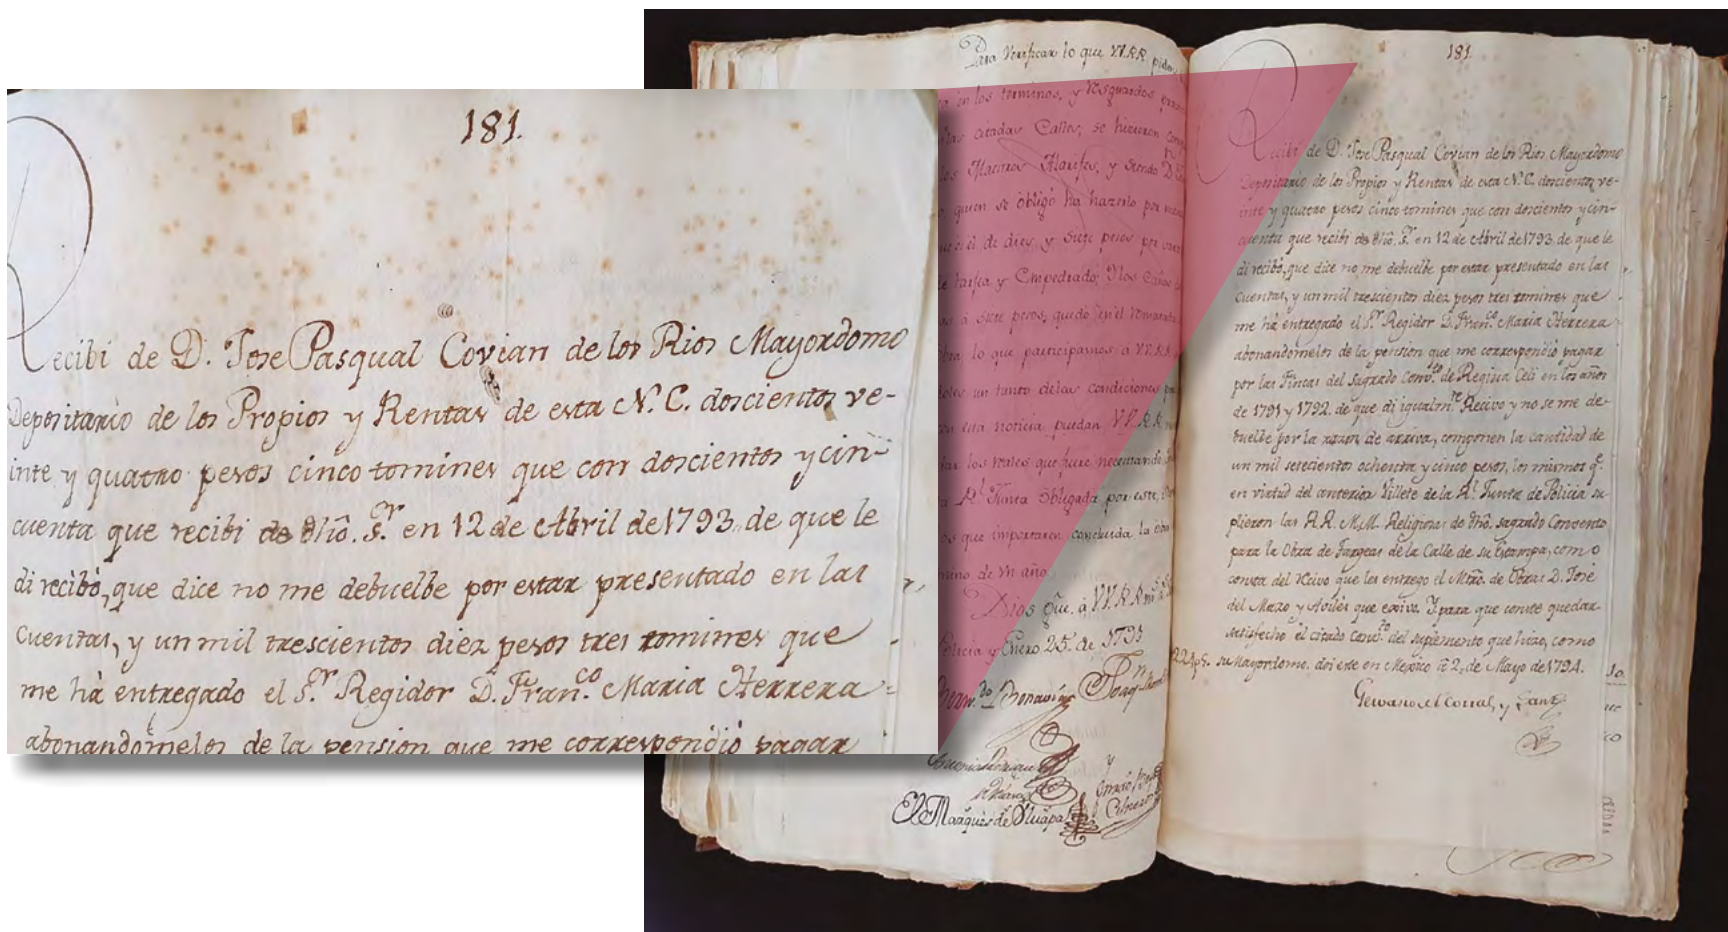 181.
Recibi de D. Jose Pasqual Covian de los Rios Mayordomo
Depositario de los Propios y Rentas de esta N. C. doscientos ve-
inte y quatro pesos cinco tomines que con doscientos y cin-
cuenta que recibi de dho. Sr. en 12 de Abril de 1793. de que le
di recibo, que dice no me debuelbe por estar presentado en las
cuentas, y un mil trescientos diez pesos tres tomines que
me há entregado el Sr. Regidor D. Franco. Maria Herrera
abonandomelos de la pension que me correspondió pagar
Para Verificar lo que VV.RR. piden
en los terminos, y Resguardos
citadas Cañas, se hizieron
Maestros Alarifes, y siendo D.
quien se obligó ha hazerlo por
el de diez, y siete pesos por
tarjea y Empedrado; Y los Caños
á siete pesos, quedó en el Remate
lo que participamos á VV.RR.
un tanto de las condiciones
esta noticia puedan VV.RR.
los reales que fuere necesitando
Rl. Junta Obligada por este,
que importaren concluida la obra
mino de un año.
Dios gue. á VV.RR. ms. as.
Policia y Enero 25. de 1793
El Marqués de Uluapa
181.
Recibi de D. Jose Pasqual Covian de los Rios Mayordomo
Depositario de los Propios y Rentas de esta N. C. doscientos ve-
inte y quatro pesos cinco tomines que con doscientos y cin-
cuenta que recibi de dho. Sr. en 12 de Abril de 1793. de que le
di recibo, que dice no me debuelbe por estar presentado en las
cuentas, y un mil trescientos diez pesos tres tomines que
me há entregado el Sr. Regidor D. Franco. Maria Herrera
abonandomelos de la pension que me correspondió pagar
por las Fincas del sagrado Convto. de Regina Celi en los años
de 1791 y 1792. de que di igualmte. Recivo y no se me de-
buelbe por la razon de arriva, componen la cantidad de
un mil setecientos ochenta y cinco pesos, los mismos qe.
en virtud del anterior Villete de la Rl. Junta de Policia su-
plieron las RR. MM. Religiosas de dho. sagrado Convento
para la Obra de Targeas de la Calle de su Estampa, como
consta del recivo que les entrego el Mtro. de Obras D. José
del Mazo, y Avilés que exivo. Y para que conste quedar
satisfecho el citado Convto. del suplemento que hizo, como
su Mayordomo, doi este en Mexico á 2, de Mayo de 1794.